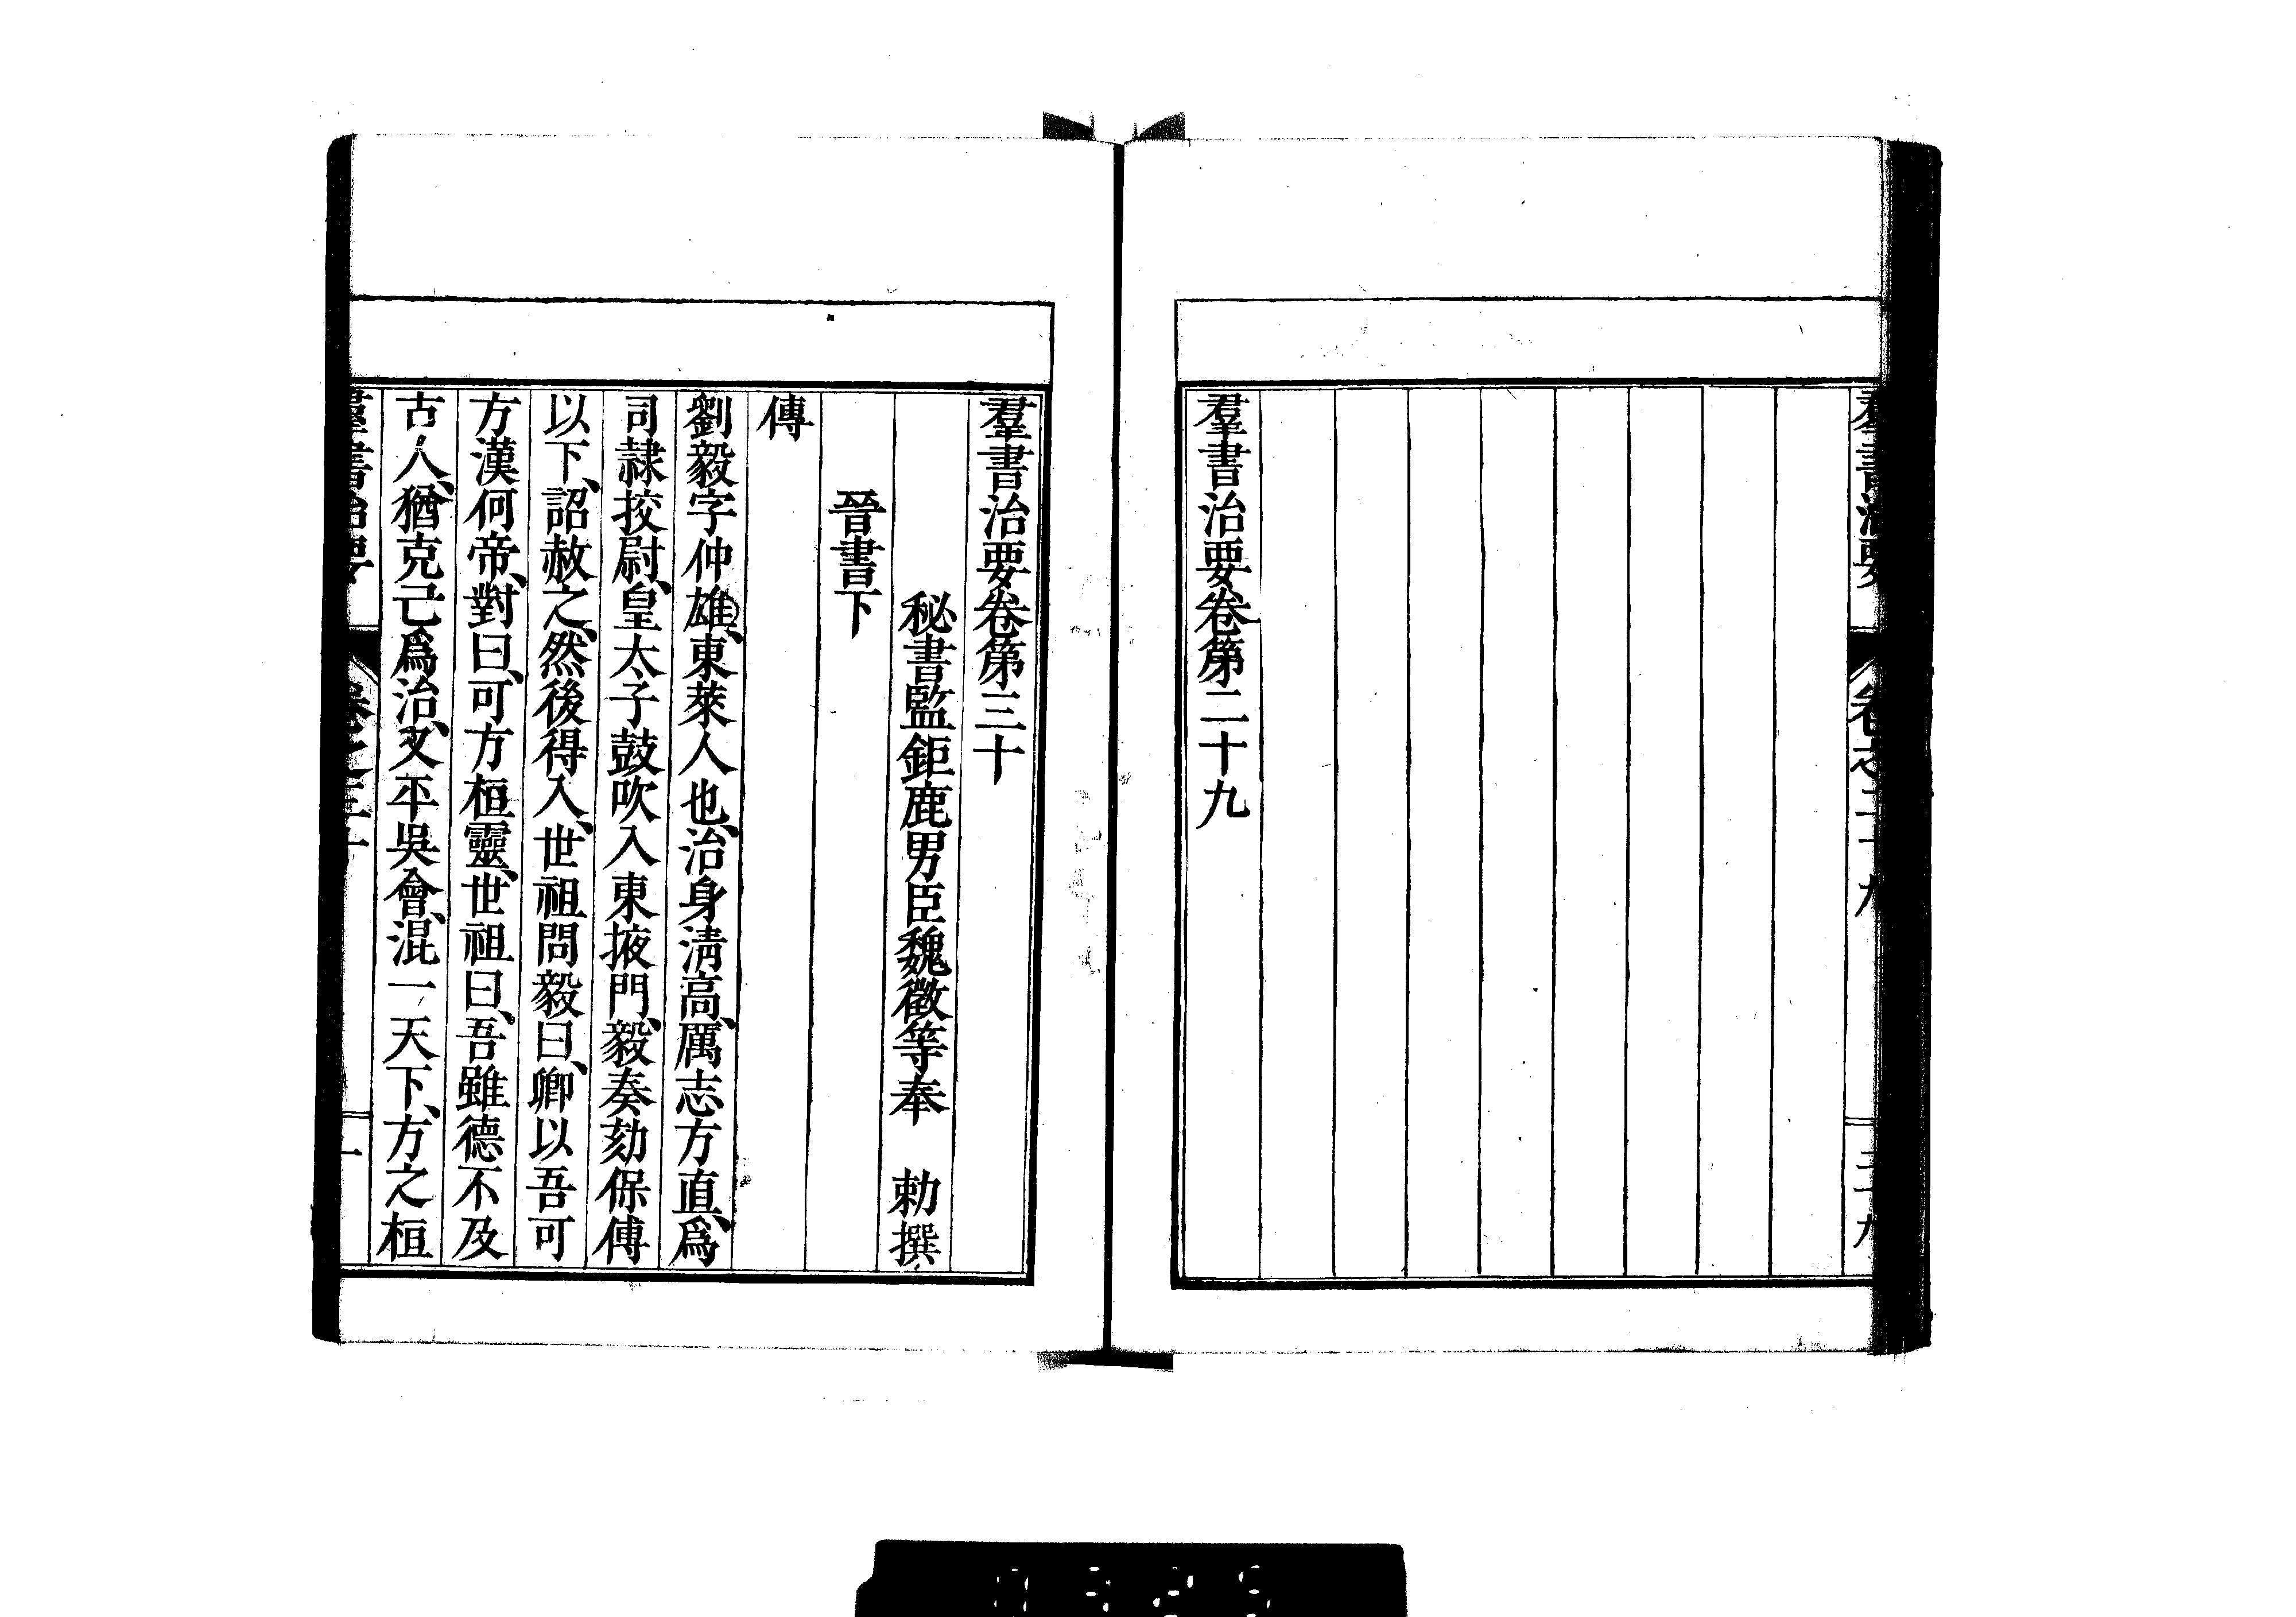 羣書治要 卷之二十九 二十九
羣書治要卷第二十九
羣書治要卷第三十
秘書監鉅鹿男臣魏徵等奉 勅撰
晉書下
傳
劉毅字仲雄、東萊人也、治身淸高、厲志方直、爲
司隷挍尉、皇太子鼓吹入東掖門、毅奏劾保傅
以下、詔赦之、然後得入、世祖問毅曰、卿以吾可
方漢何帝、對曰、可方桓靈、世祖曰、吾雖德不及
古人、猶克己爲治、又平吳會、混一天下、方之桓
羣書治要 卷之三十 一